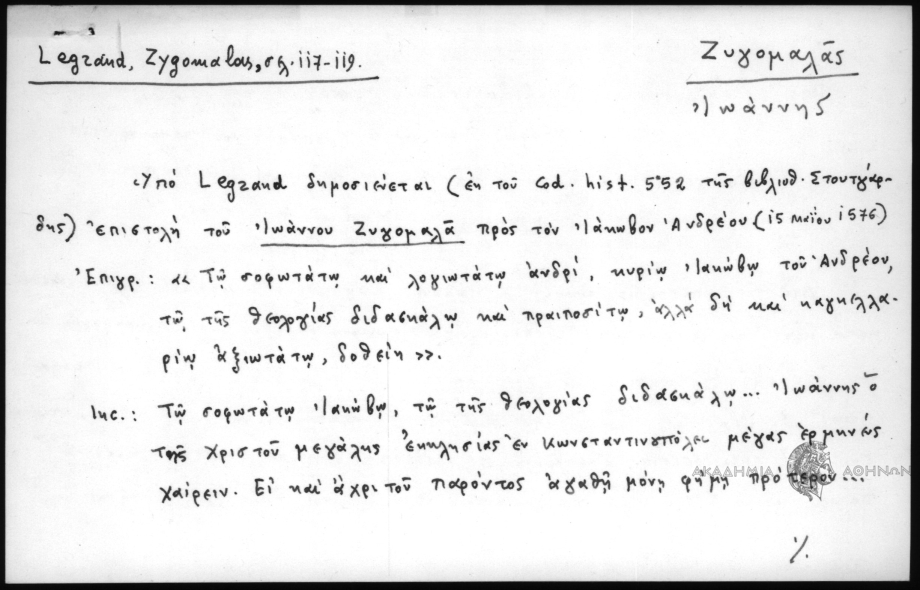 Legrand, Zygomalas, σελ. 117-119.
Ζυγομαλᾶς
Ἰωάννης
Ὑπό Legrand δημοσιεύεται (ἐκ τοῦ Cod. hist. 5°52 τῆς βιβλιοθ. Στουτγάρ-
δης) ἐπιστολή τοῦ Ἰωάννου Ζυγομαλᾶ πρός τόν Ἰάκωβον Ἀνδρέου (15 Μαΐου 1576)
Ἐπιγρ.: «Τῷ σοφωτάτῳ καί λογιωτάτῳ ἀνδρί, κυρίῳ Ἰακώβῳ τοῦ Ἀνδρέου,
τῷ τῆς θεολογίας διδασκάλῳ καί πραιποσίτῳ, ἀλλά δή καί καγκελλα-
ρίῳ ἀξιωτάτῳ, δοθείη».
Inc.: Τῷ σοφωτάτῳ Ἰακώβῳ, τῷ τῆς θεολογίας διδασκάλῳ... Ἰωάννης ὁ
τῆς Χριστοῦ μεγάλης ἐκκλησίας ἐν Κωνσταντινουπόλει μέγας ἑρμηνεύς
χαίρειν. Εἰ καί ἄχρι τοῦ παρόντος ἀγαθῇ μόνῃ φήμῃ πρότερον...
ΑΚΑΔΗΜΙΑ ΑΘΗΝΩΝ
%.